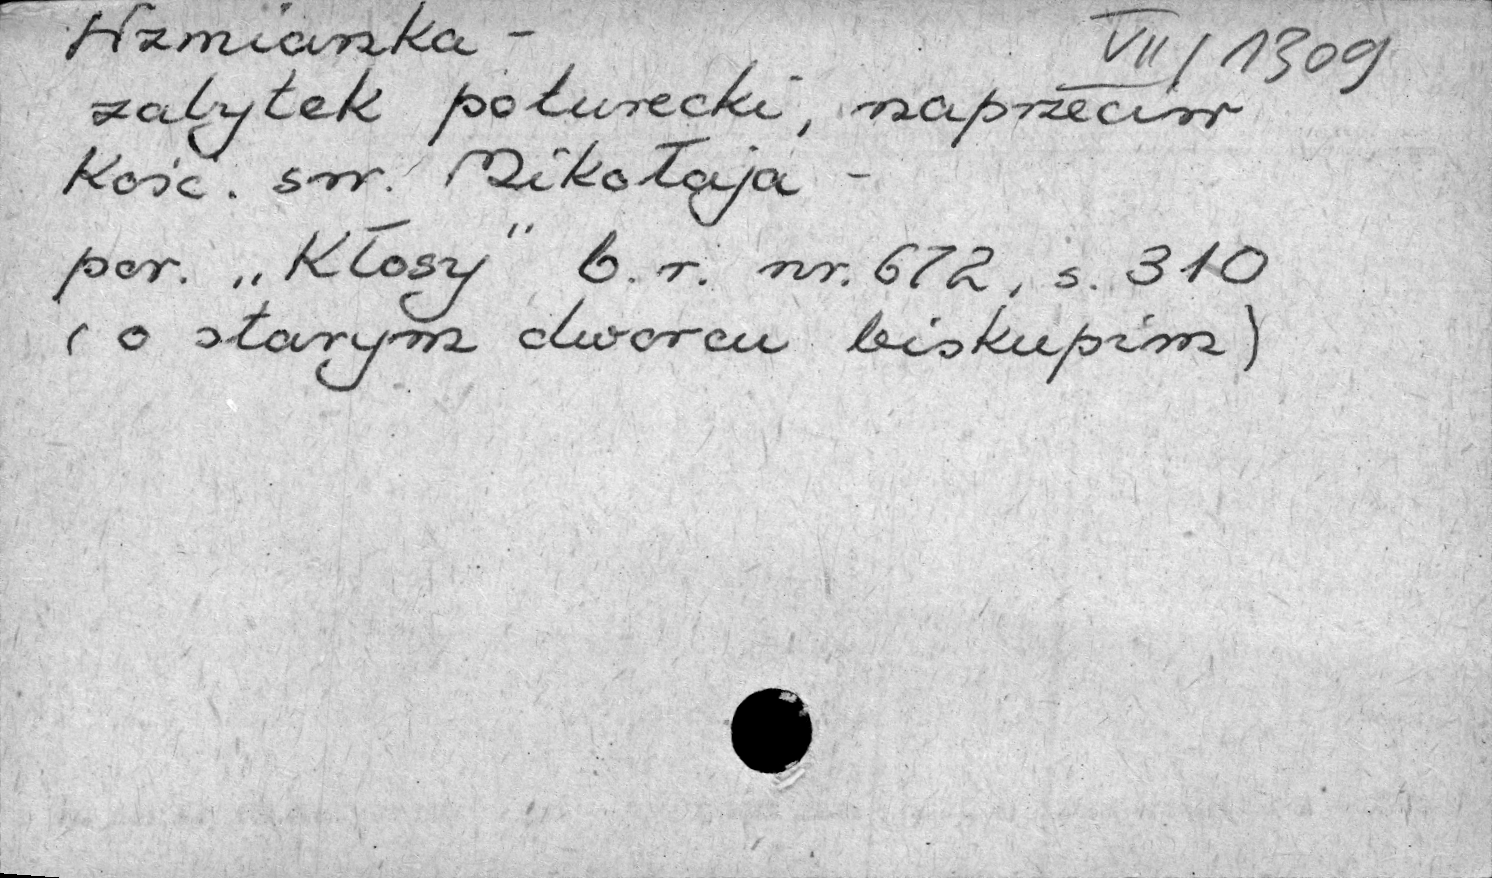 Wzmianka -
VII/1309
zabytek poturecki, naprzeciw
Kośc. św. Mikołaja -
por. „Kłosy" b.r. nr. 672, s. 310
(o starym dworcu biskupim)